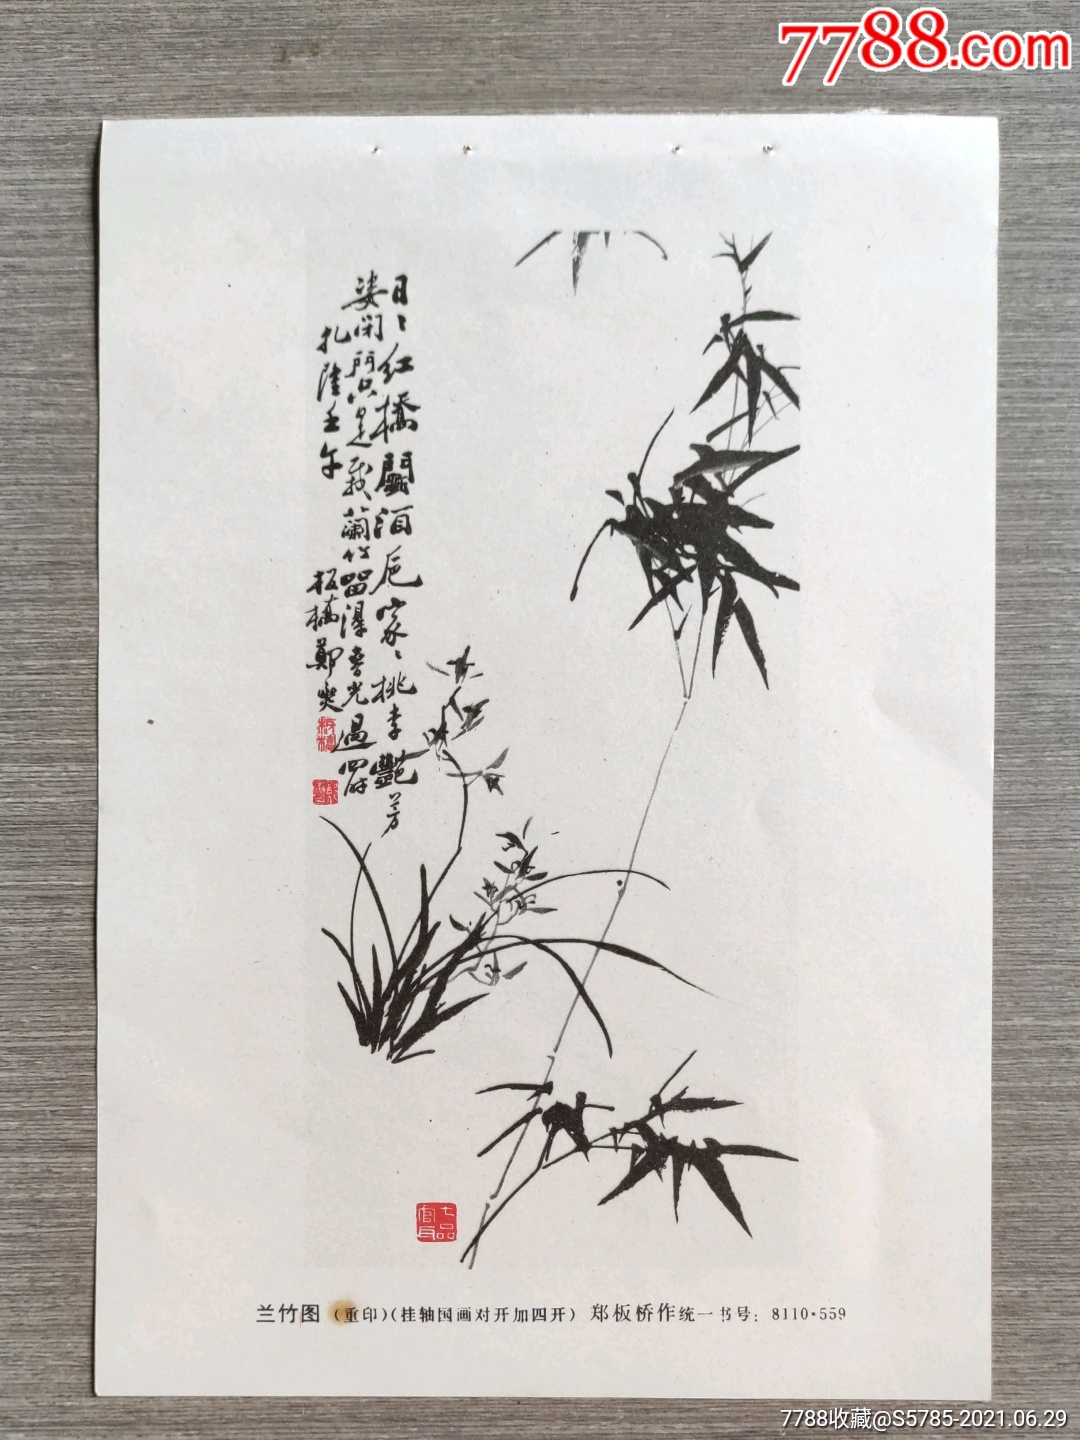 7788.com
日〻红橋鬭酒卮家〻桃李艷芳
姿闭門只是栽蘭竹留得春光過四时
乾隆壬午 板橋鄭燮
七品官耳
兰竹图（重印）（挂轴国画对开加四开） 郑板桥作 统一书号：8110·559
7788收藏@S5785-2021.06.29